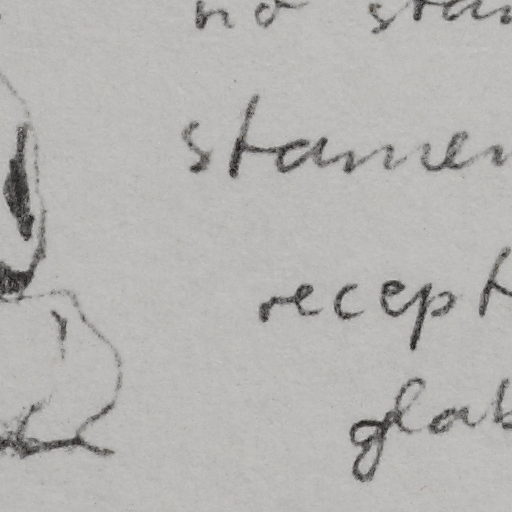 no stam
stamen
recept
glab